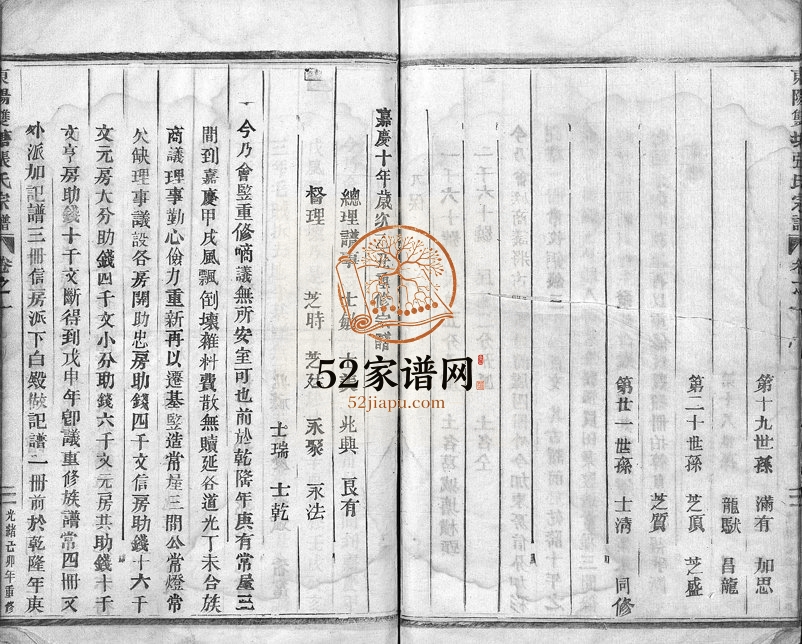 東陽雙
張氏宗譜
卷之一
第十九世孫 滿有 加思
龍獻 昌龍
第二十世孫 芝頂 芝盛
芝質
第廿一世孫 士清 同修
嘉慶十年歲次乙丑重修宗譜
總理譜事 士敏 兆興 良有
督理 芝時 芝廷 永聚 永法
士瑞 士乾
一今乃會監重修啇議無所安室可也前於乾隆年奐有常屋三
間到嘉慶甲戌風飄倒壞雜料費散無贖延各道光丁未合族
商議理事勤心儉力重新再以遷基監造常屋三間公常燈常
欠缺理事議設各房開助忠房助錢四千文信房助錢十六千
文元房大分助錢四千文小分助錢六千文元房共助錢十千
文亨房助錢十千文斷得到戊申年卽議重修族譜常四冊又
外派加記譜三冊信房派下白毀做記譜一冊前於乾隆年庚
東陽雙
張氏宗譜
卷之一
光緒己卯年重修
52家谱网
52jiapu.com